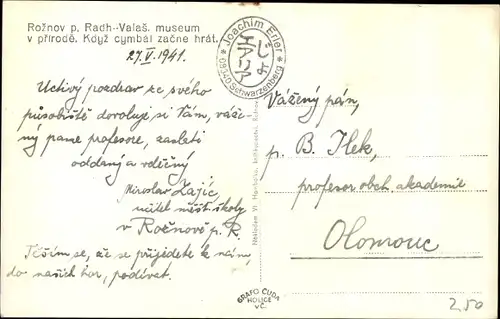 Rožnov p. Radh.-Valaš. museum
v přírodě. Když cymbál začne hrát.
27.V.1941.
Uctivý pozdrav ze svého
působiště dovoluji si Vám, váže-
ný pane profesore, zaslati
oddaný a vděčný
Miroslav Zajíc,
učitel měšť. školy
v Rožnově p. R.
Těším se, až se přijedete k nám,
do našich hor, podívat.
* Joachim Erler *
09340 Schwarzenberg
じょ
エアリア
Vážený pán,
p. B. Ilek,
profesor obch. akademie
Olomouc
Nákladem
GRAFO ČUDA
HOLICE
VČ.
2,50